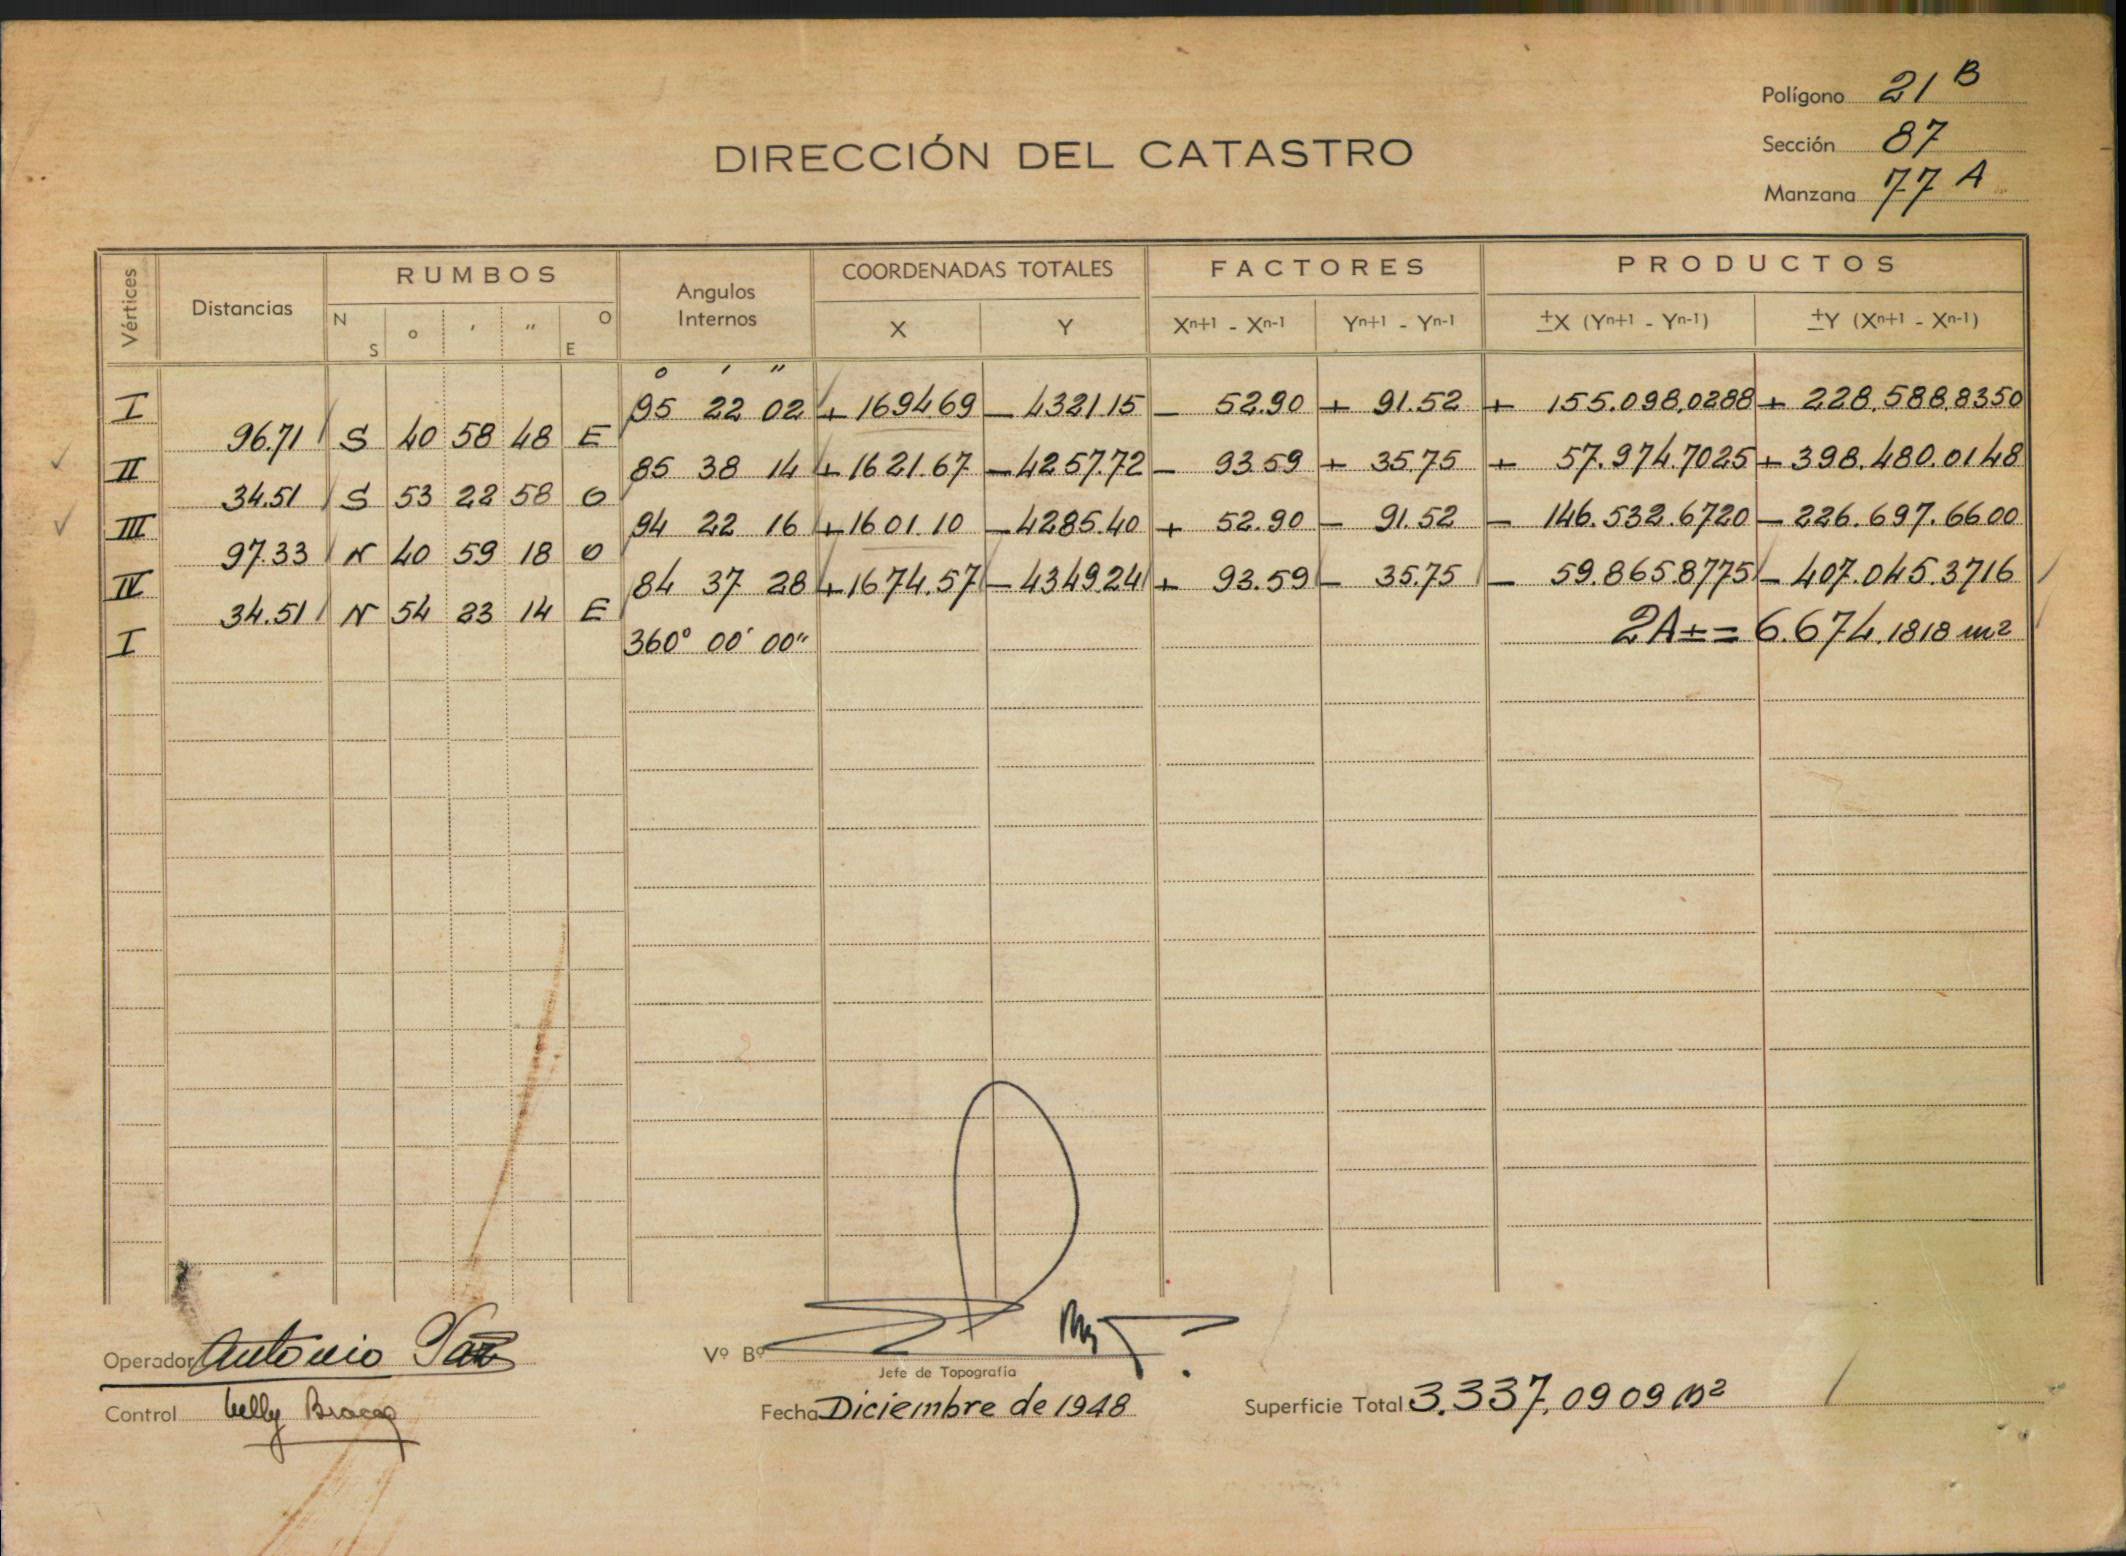 Polígono 21 B
Sección 87
Manzana 77 A
DIRECCIÓN DEL CATASTRO
Vértices Distancias RUMBOS Angulos Internos COORDENADAS TOTALES FACTORES PRODUCTOS
N S ° ' " O E X Y Xn+1 - Xn-1 Yn+1 - Yn-1 ±X (Yn+1 - Yn-1) ±Y (Xn+1 - Xn-1)
° ' "
I 95 22 02 + 169469 - 4321.15 - 52.90 + 91.52 + 155.098,0288 + 228.588,8350
96.71 S 40 58 48 E
II 85 38 14 + 1621.67 - 4257.72 - 93.59 + 35.75 + 57.974.7025 + 398.480.0148
34.51 S 53 22 58 O
III 94 22 16 + 1601.10 - 4285.40 + 52.90 - 91.52 - 146.532.6720 - 226.697.6600
97.33 N 40 59 18 O
IV 84 37 28 + 1674.57 - 4349.24 + 93.59 - 35.75 - 59.865.8775 - 407.045.3716
34.51 N 54 23 14 E
I 360° 00' 00" 2A± = 6.674.1818 m2
Operador Antonio Paz
Vº Bº
Jefe de Topografía
Control Nelly
Fecha Diciembre de 1948
Superficie Total 3.337,0909 m2